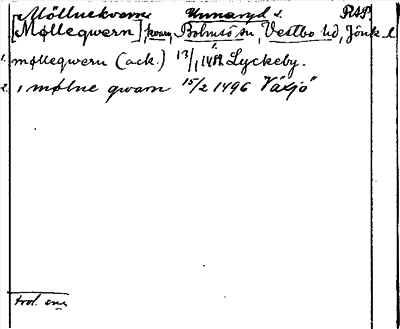 Möllnekvarn Unnaryd s. RAP.
[Mølleqwern], kvarn, Bolmsö sn, Vestbo hd, Jönk. l
1. mølleqwern (ack.) 13/1 Lyckeby.
2. i mølne qwarn 15/2 1496 Växjö"
trol.